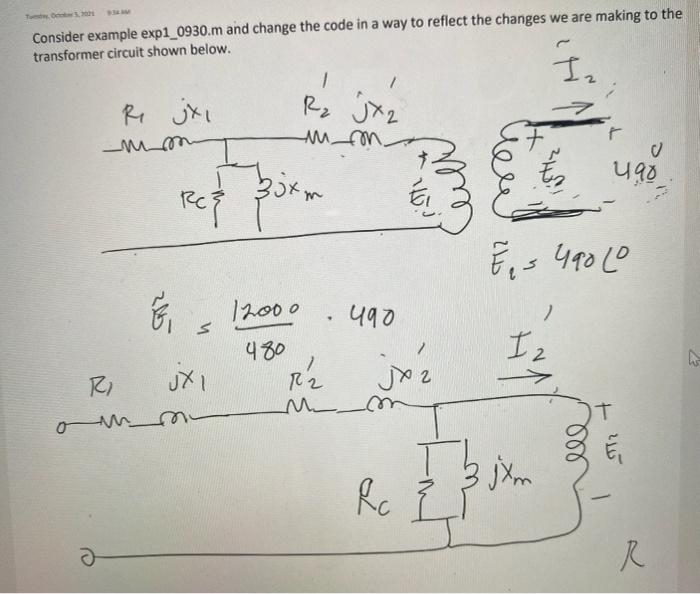 Tuesday, October 5, 2021 9:34 AM
Consider example exp1_0930.m and change the code in a way to reflect the changes we are making to the
transformer circuit shown below.
Ĩ₂
R₁ jx₁ R₂' jx₂'
+ Ẽ₂ - 490
Rc jxm + Ẽ₁ -
Ẽ₂ = 490∠0
Ẽ₁ = 12000/480 · 490
I₂'
R₁ jx₁ R₂' jx₂'
+ Ẽ₁ -
Rc jxm
R